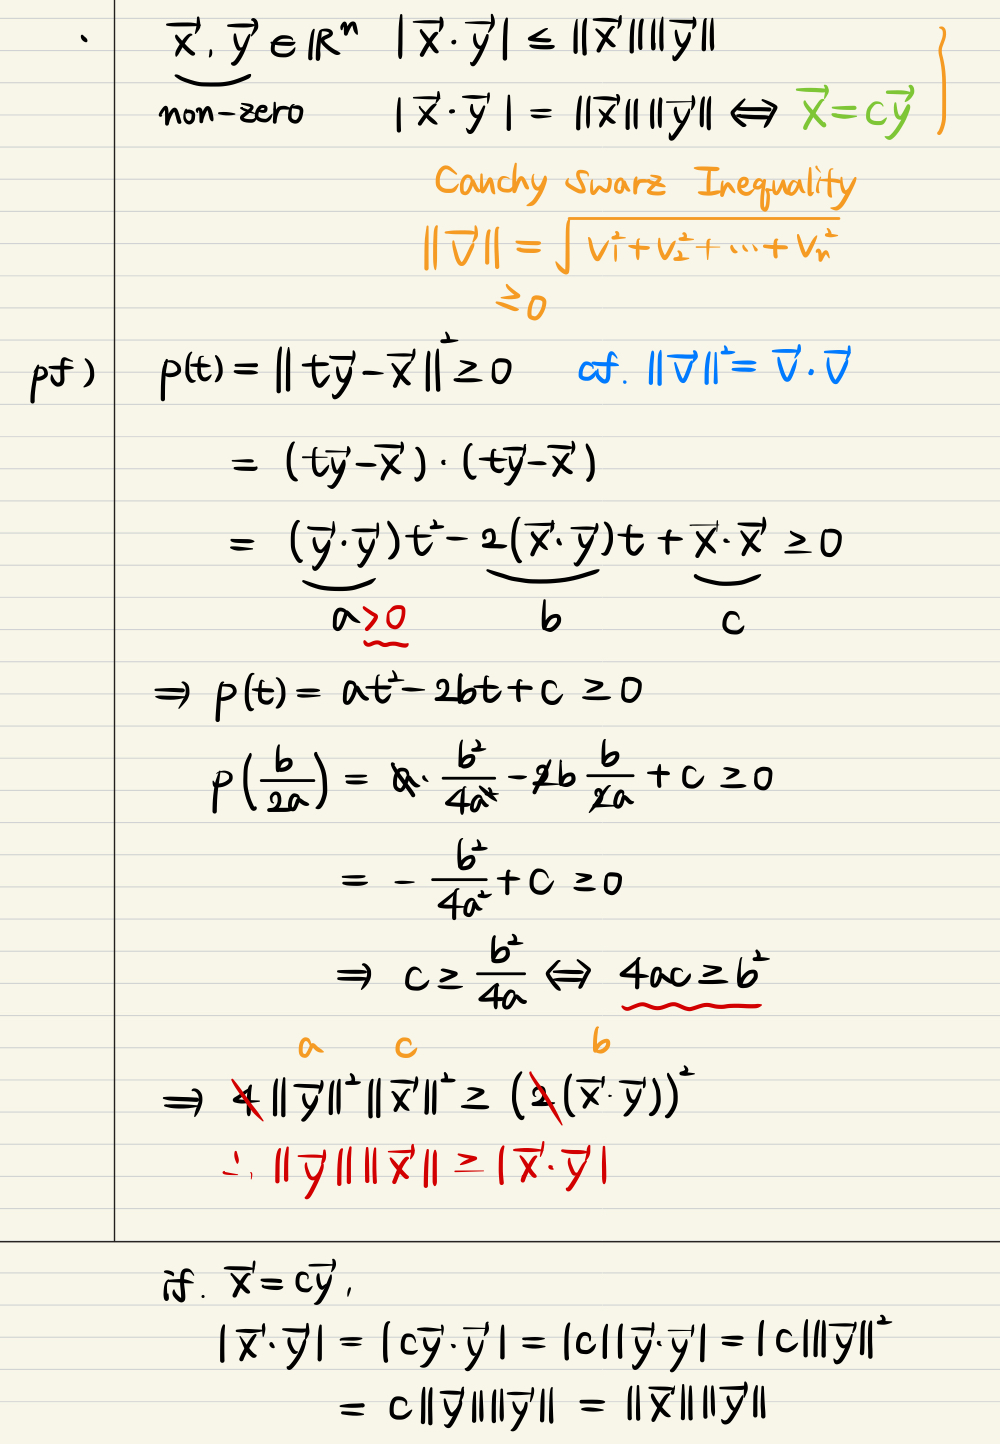 · x⃗, y⃗ ∈ ℝⁿ |x⃗·y⃗| ≤ ‖x⃗‖‖y⃗‖
non-zero |x⃗·y⃗| = ‖x⃗‖‖y⃗‖ ⟺ x⃗ = cy⃗
Canchy Swarz Inequality
‖v⃗‖ = √(v₁² + v₂² + ··· + vₙ²)
≥ 0
pf) p(t) = ‖ty⃗ − x⃗‖² ≥ 0 cf. ‖v⃗‖² = v⃗·v⃗
= (ty⃗ − x⃗)·(ty⃗ − x⃗)
= (y⃗·y⃗)t² − 2(x⃗·y⃗)t + x⃗·x⃗ ≥ 0
a > 0 b c
⇒ p(t) = at² − 2bt + c ≥ 0
p(b/2a) = a · b²/4a² − 2b b/2a + c ≥ 0
= − b²/4a² + c ≥ 0
⇒ c ≥ b²/4a ⟺ 4ac ≥ b²
a c b
⇒ 4‖y⃗‖²‖x⃗‖² ≥ (2(x⃗·y⃗))²
∴ ‖y⃗‖‖x⃗‖ ≥ |x⃗·y⃗|
if. x⃗ = cy⃗,
|x⃗·y⃗| = |cy⃗·y⃗| = |c||y⃗·y⃗| = |c|‖y⃗‖²
= c‖y⃗‖‖y⃗‖ = ‖x⃗‖‖y⃗‖